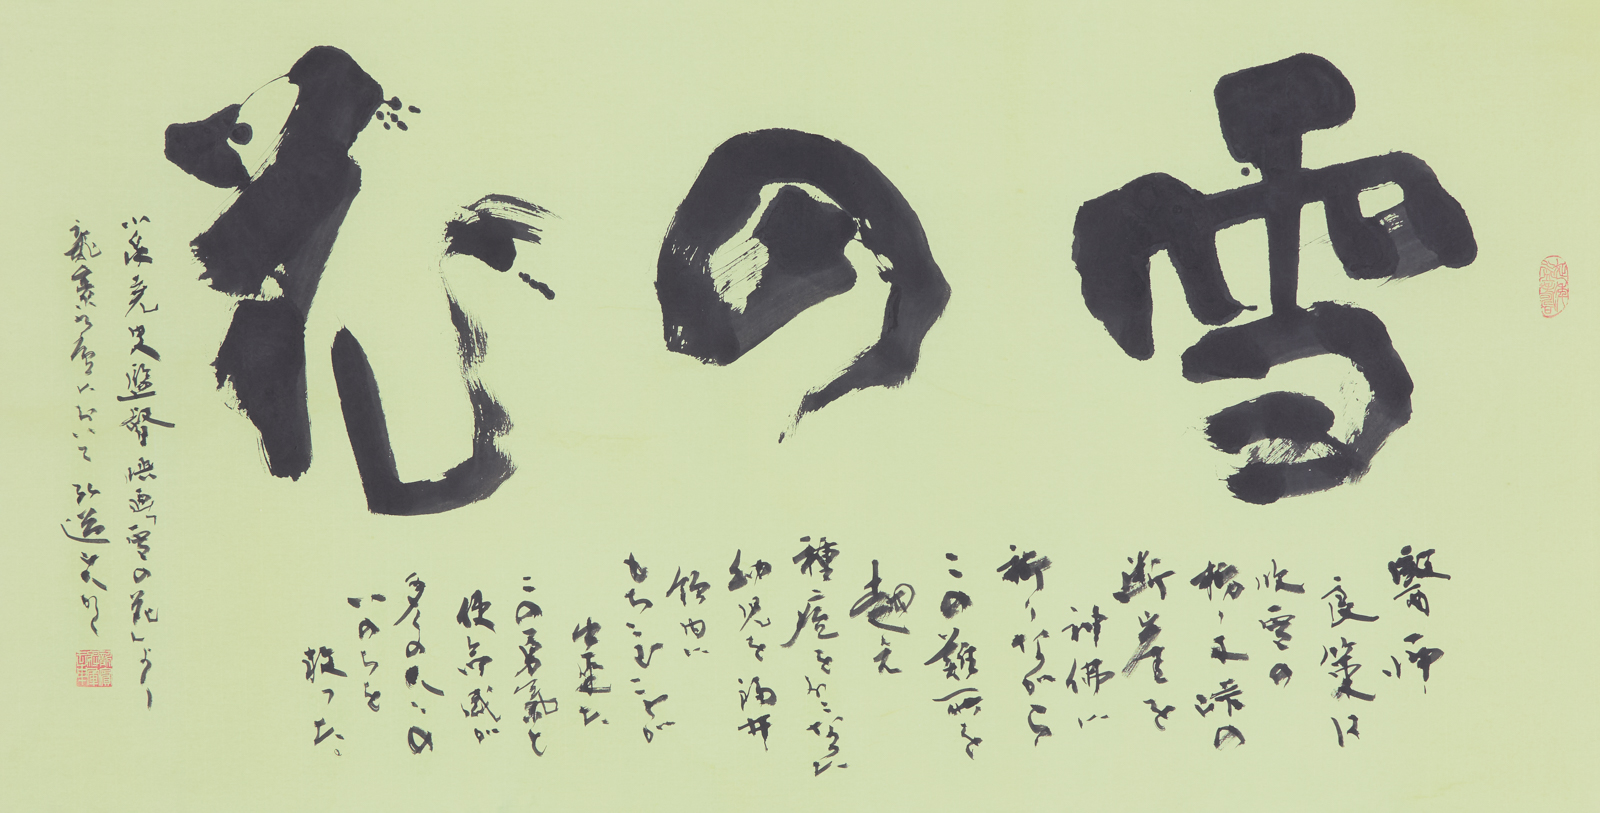 雪の花
醫師
良策は
吹雪の
栃ノ木峠の
断崖を
神佛に
祈りながら
この難所を
超え
種痘をおこなった
幼児を福井
領内に
もちこむことが
出来た
この勇氣と
使命感が
多くの人々の
いのちを
救った。
小泉堯史監督映画「雪の花」より
において